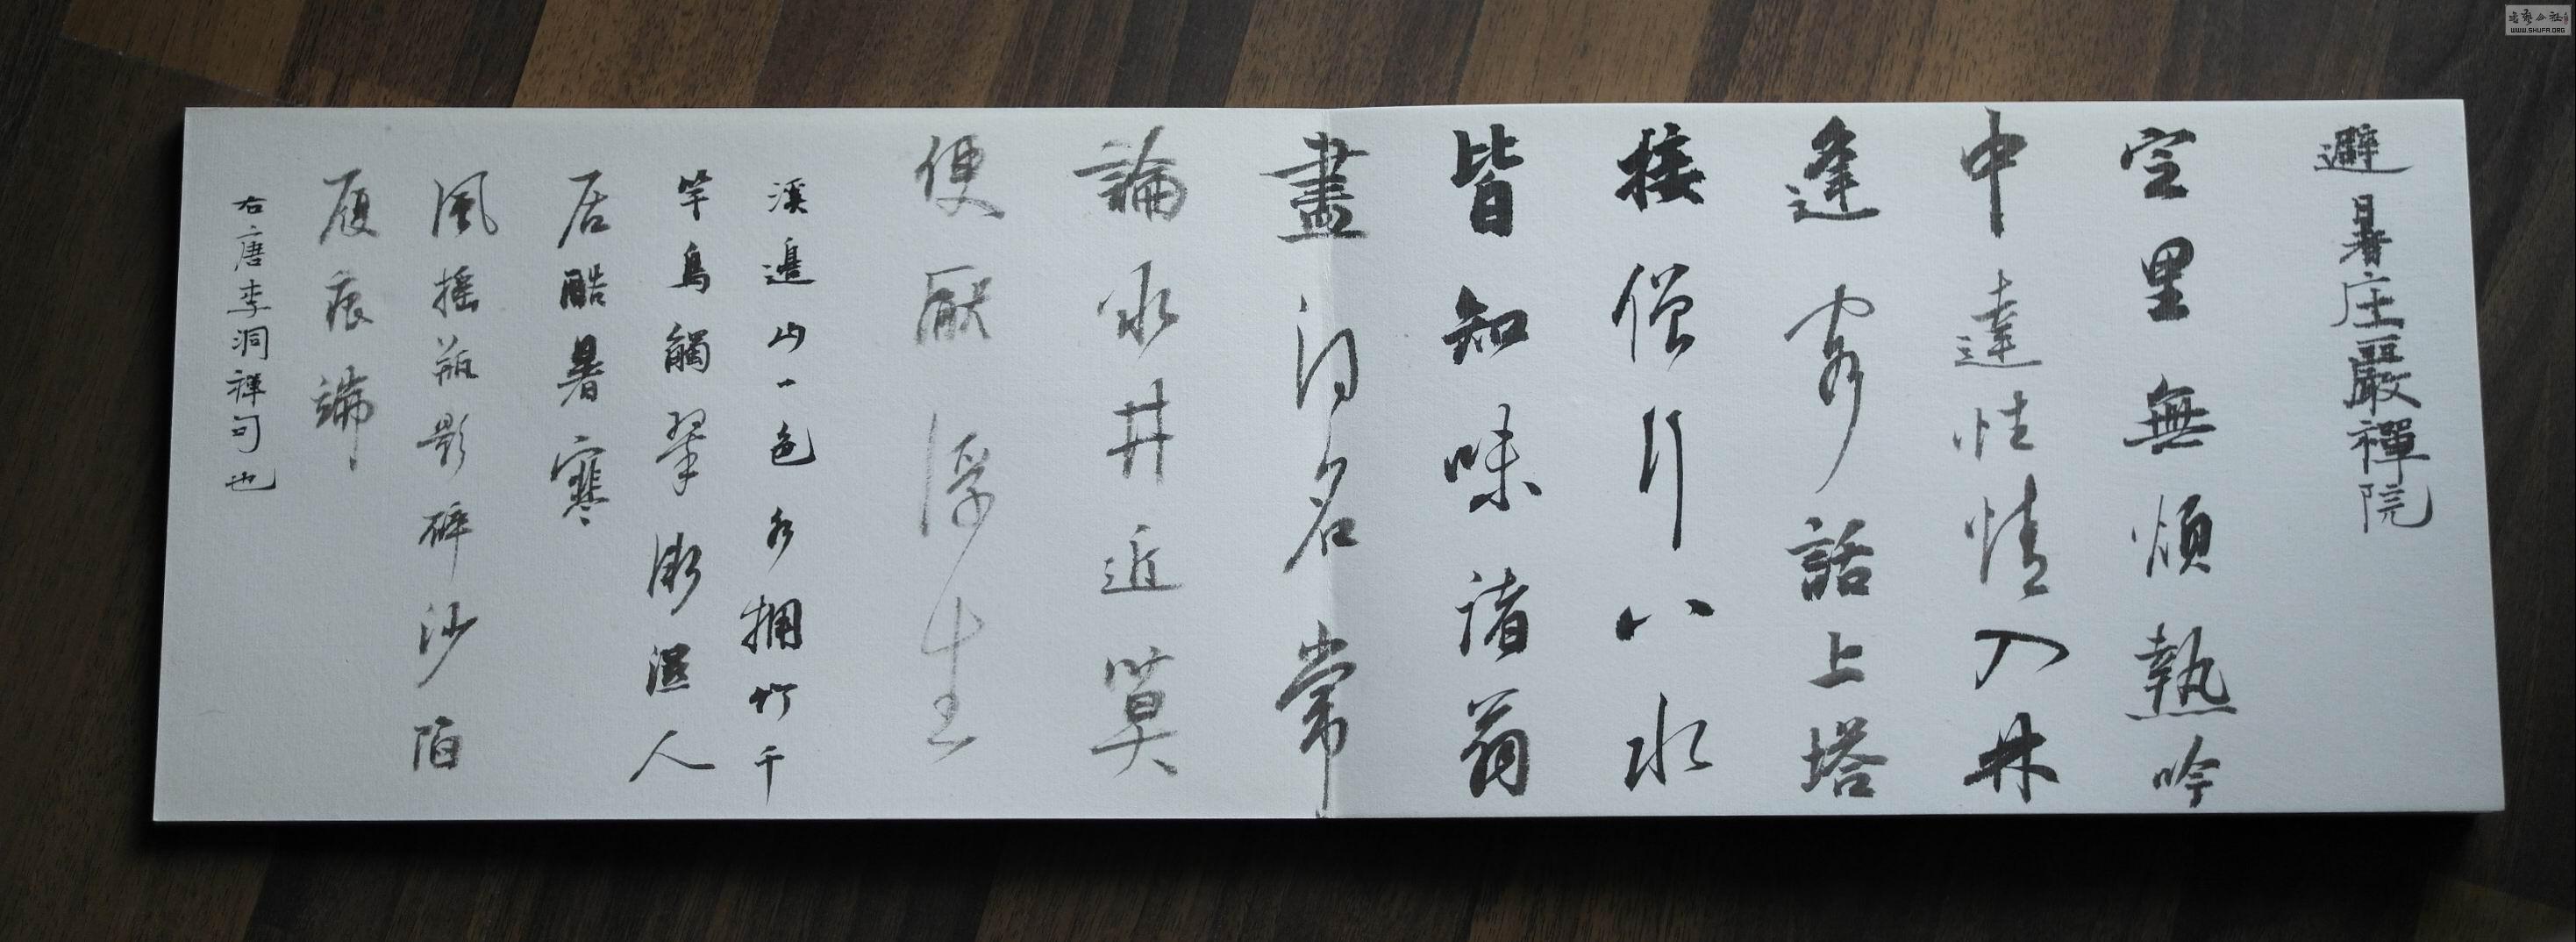 避暑庄嚴禪院
定里無煩熱吟
中達性情入林
逢客話上塔
接僧行八水
皆知味諸翁
盡得名常
論氷井近莫
便厭浮生
溪邊山一色水拥竹千
竿鳥觸翠微濕人
居酷暑寒
風摇瓶影碎沙陷
履痕端
右唐李洞禅句也
WWW.SHUFA.ORG